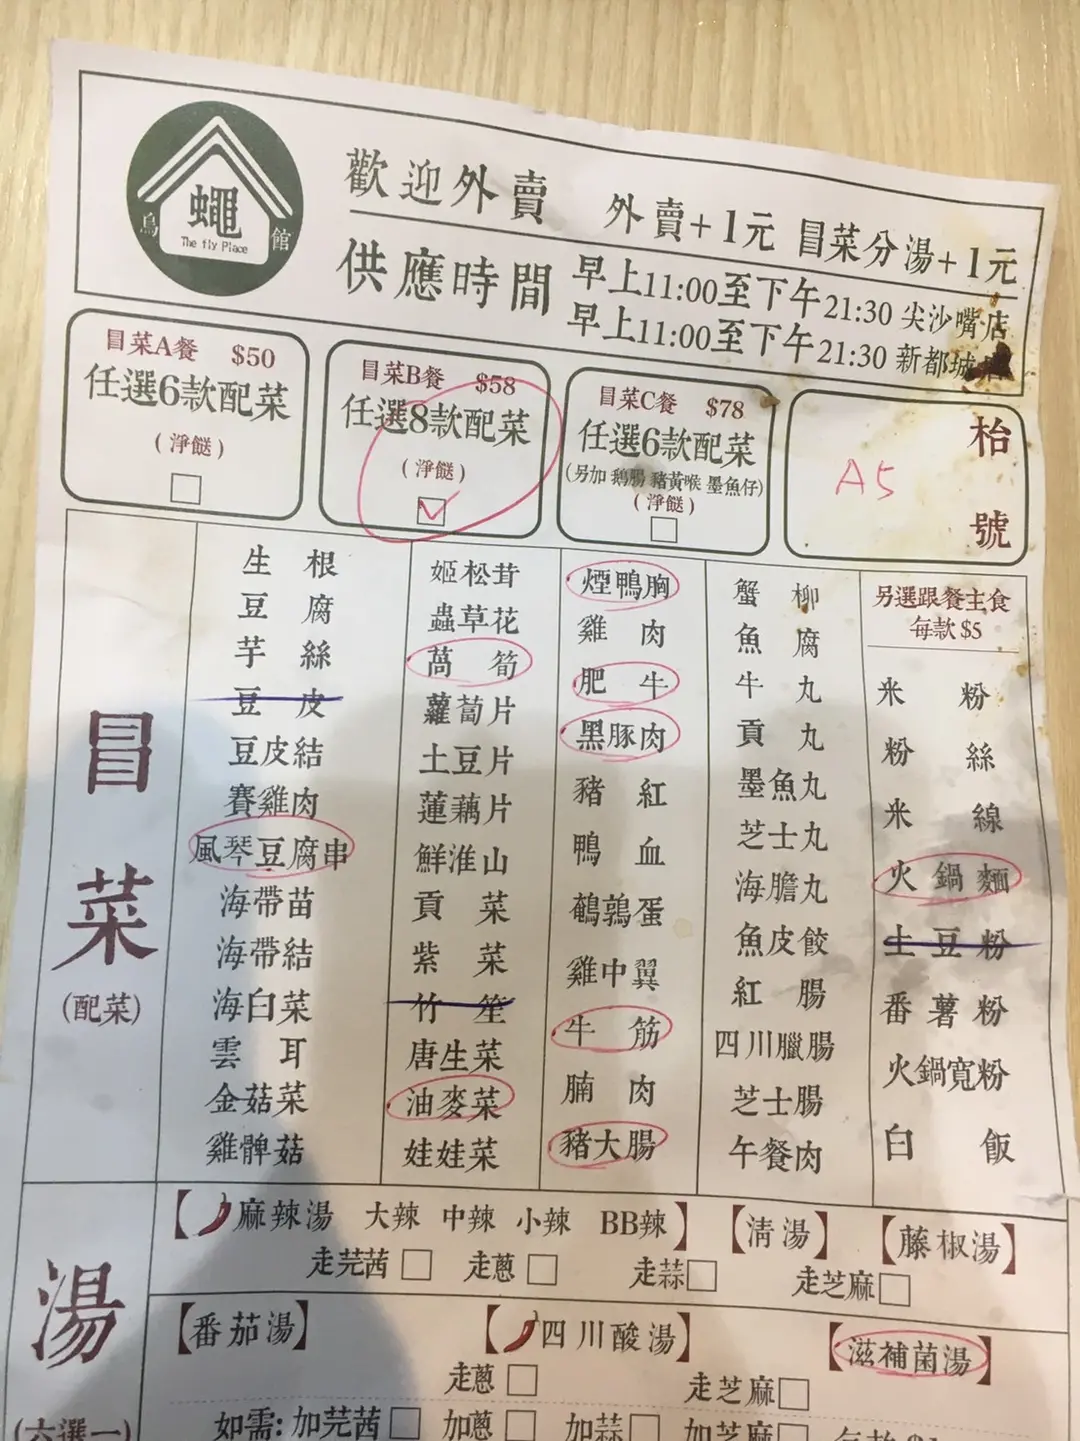 蠅
鳥 館
The fly Place
歡迎外賣 外賣+1元 冒菜分湯+1元
供應時間
早上11:00至下午21:30 尖沙嘴店
早上11:00至下午21:30 新都城
冒菜A餐 $50
任選6款配菜
(淨餸)
冒菜B餐 $58
任選8款配菜
(淨餸)
冒菜C餐 $78
任選6款配菜
(另加 鵝腸 豬黃喉 墨魚仔)
(淨餸)
枱號
A5
冒菜
(配菜)
生根
豆腐
芋絲
豆皮
豆皮結
賽雞肉
風琴豆腐串
海帶苗
海帶結
海白菜
雲耳
金菇菜
雞髀菇
姬松茸
蟲草花
萵筍
蘿蔔片
土豆片
蓮藕片
鮮淮山
貢菜
紫菜
竹笙
唐生菜
油麥菜
娃娃菜
煙鴨胸
雞肉
肥牛
黑豚肉
豬紅
鴨血
鵪鶉蛋
雞中翼
牛筋
腩肉
豬大腸
蟹柳
魚腐
牛丸
貢丸
墨魚丸
芝士丸
海膽丸
魚皮餃
紅腸
四川臘腸
芝士腸
午餐肉
另選跟餐主食
每款$5
米粉
粉絲
米線
火鍋麵
土豆粉
番薯粉
火鍋寬粉
白飯
湯
(六選一)
【麻辣湯 大辣 中辣 小辣 BB辣】 【清湯】 【藤椒湯】
走芫茜 走蔥 走蒜 走芝麻
【番茄湯】 【四川酸湯】 【滋補菌湯】
走蔥 走芝麻
如需: 加芫茜 加蔥 加蒜 加芝麻 每款$1